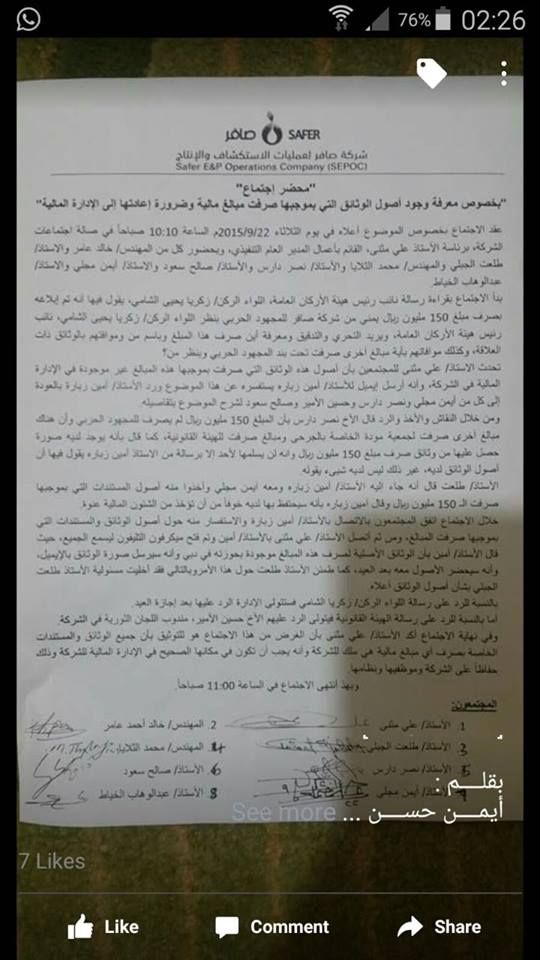 76% 02:26
صافر SAFER
شركة صافر لعمليات الاستكشاف والإنتاج
Safer E&P Operations Company (SEPOC)
"محضر إجتماع"
"بخصوص معرفة وجود أصول الوثائق التي بموجبها صرفت مبالغ مالية وضرورة إعادتها إلى الإدارة المالية"
عقد الاجتماع بخصوص الموضوع أعلاه في يوم الثلاثاء 2015/9/22م الساعة 10:10 صباحاً في صالة اجتماعات
الشركة، برئاسة الأستاذ علي مثنى، القائم بأعمال المدير العام التنفيذي، وبحضور كل من المهندس/ خالد عامر والاستاذ/
طلعت الجبلي والمهندس/ محمد الثلايا والأستاذ/ نصر دارس والأستاذ/ صالح سعود والاستاذ/ أيمن مجلي والاستاذ/
عبدالوهاب الخياط.
بدأ الاجتماع بقراءة رسالة نائب رئيس هيئة الأركان العامة، اللواء الركن/ زكريا يحيى الشامي، يقول فيها أنه تم إبلاغه
بصرف مبلغ 150 مليون ريال يمني من شركة صافر للمجهود الحربي بنظر اللواء الركن/ زكريا يحيى الشامي، نائب
رئيس هيئة الأركان العامة، ويريد التحري والتدقيق ومعرفة أين صرف هذا المبلغ وباسم من وموافقتهم بالوثائق ذات
العلاقة، وكذلك موافاتهم بأية مبالغ أخرى صرفت تحت بند المجهود الحربي وبنظر من؟
تحدث الاستاذ/ علي مثنى للمجتمعين بأن أصول هذه الوثائق التي صرفت بموجبها هذه المبالغ غير موجودة في الإدارة
المالية في الشركة، وأنه أرسل إيميل للأستاذ أمين زباره يستفسره عن هذا الموضوع ورد الأستاذ/ أمين زبارة بالعودة
إلى كل من أيمن مجلي ونصر دارس وحسين الأمير وصالح سعود لشرح الموضوع بتفاصيله.
ومن خلال النقاش والأخذ والرد قال الأخ نصر دارس بأن المبلغ 150 مليون ريال لم يصرف للمجهود الحربي وأن هناك
مبالغ أخرى صرفت لجمعية مودة الخاصة بالجرحى ومبالغ صرفت للهيئة القانونية، كما قال بأنه يوجد لديه صورة
حصل عليها من وثائق صرف مبلغ 150 مليون ريال وانه لن يسلمها لأحد إلا برسالة من الاستاذ أمين زباره يقول فيها أن
أصول الوثائق لديه، غير ذلك ليس لديه شيء يقوله.
الأستاذ/ طلعت قال أنه جاء اليه الأستاذ/ أمين زباره ومعه ايمن مجلي وأخذوا منه أصول المستندات التي بموجبها
صرفت الـ 150 مليون ريال وقال أمين زباره بأنه سيحتفظ بها لديه خوفاً من أن تؤخذ من الشئون المالية عنوة.
خلال الاجتماع اتفق المجتمعون بالاتصال بالأستاذ/ أمين زبارة والاستفسار منه حول أصول الوثائق والمستندات التي
بموجبها صرفت المبالغ، ومن ثم أتصل الأستاذ/ علي مثنى بالأستاذ/ أمين وتم فتح ميكرفون التليفون ليسمع الجميع، حيث
قال الأستاذ/ أمين بأن الوثائق الأصلية لصرف هذه المبالغ موجودة بحوزته في دبي وأنه سيرسل صورة الوثائق بالإيميل،
وأنه سيحضر الأصول معه بعد العيد، كما طمئن الأستاذ طلعت حول هذا الأمر وبالتالي فقد أخليت مسئولية الأستاذ طلعت
الجبلي بشأن أصول الوثائق أعلاه
بالنسبة للرد على رسالة اللواء الركن/ زكريا الشامي فستتولى الإدارة الرد عليها بعد إجازة العيد.
أما بالنسبة للرد على رسالة الهيئة القانونية فيتولى الرد عليهم الأخ حسين الأمير، مندوب اللجان الثورية في الشركة.
وفي نهاية الإجتماع أكد الأستاذ/ علي مثنى بأن الغرض من هذا الاجتماع هو للتوثيق بأن جميع الوثائق والمستندات
الخاصة بصرف أي مبالغ مالية هي ملك للشركة وأنه يجب أن تكون في مكانها الصحيح في الإدارة المالية للشركة وذلك
حفاظاً على الشركة وموظفيها ونظامها.
وبهذا انتهى الاجتماع في الساعة 11:00 صباحاً.
المجتمعون:
1. الأستاذ/ علي مثنى 2. المهندس/ خالد أحمد عامر
3. الأستاذ/ طلعت الجبلي 4. المهندس/ محمد الثلايا
5. الأستاذ/ نصر دارس 6. الأستاذ/ صالح سعود
الأستاذ/ أيمن مجلي 8. الأستاذ/ عبدالوهاب الخياط
بقلـــم :
أيمـــن حســـن ... See more
7 Likes
Like Comment Share